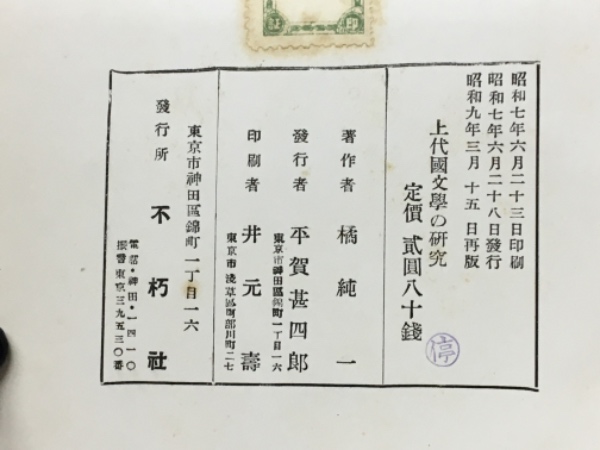 昭和七年六月二十三日印刷
昭和七年六月二十八日發行
昭和九年三月十五日再版
上代國文學の研究
定價 貳圓八十錢
停
著作者 橘純一
發行者 平賀甚四郎
東京市神田區錦町一丁目一六
印刷者 井元壽
東京市淺草區阿部川町二七
東京市神田區錦町一丁目一六
發行所 不朽社
電話・神田・一四一〇
振替東京三九五三〇番